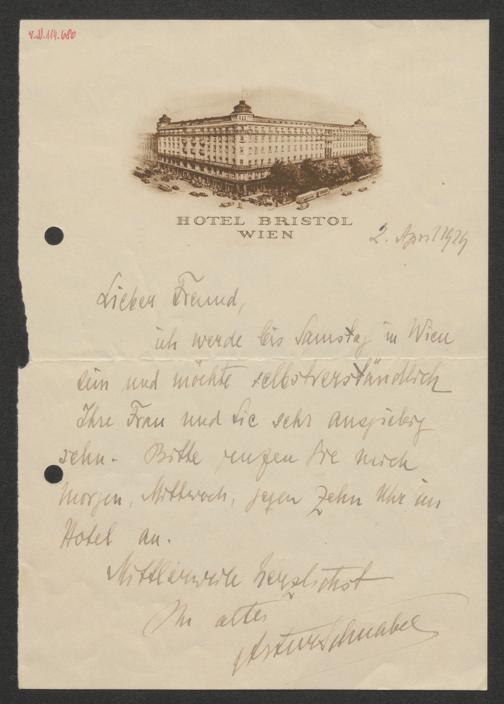 HOTEL BRISTOL
WIEN
2. April 1929
Lieber Freund,
ich werde bis Samstag in Wien
sein und möchte selbstverständlich
Ihre Frau und Sie sehr ausgiebig
sehn. Bitte rufen Sie mich
morgen, Mittwoch, gegen Zehn Uhr im
Hotel an.
Mittlerweile herzlichst
Ihr alter
Artur Schnabel